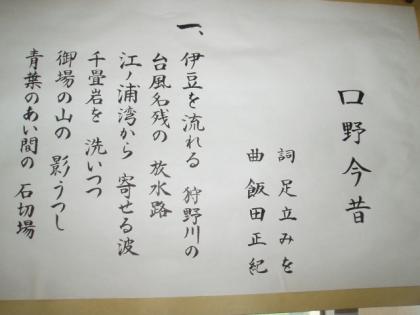 口野今昔
詞 足立みを
曲 飯田正紀
一、伊豆を流れる 狩野川の
台風名残の 放水路
江ノ浦湾から 寄せる波
千畳岩を 洗いつつ
御場の山の 影うつし
青葉のあい間の 石切場